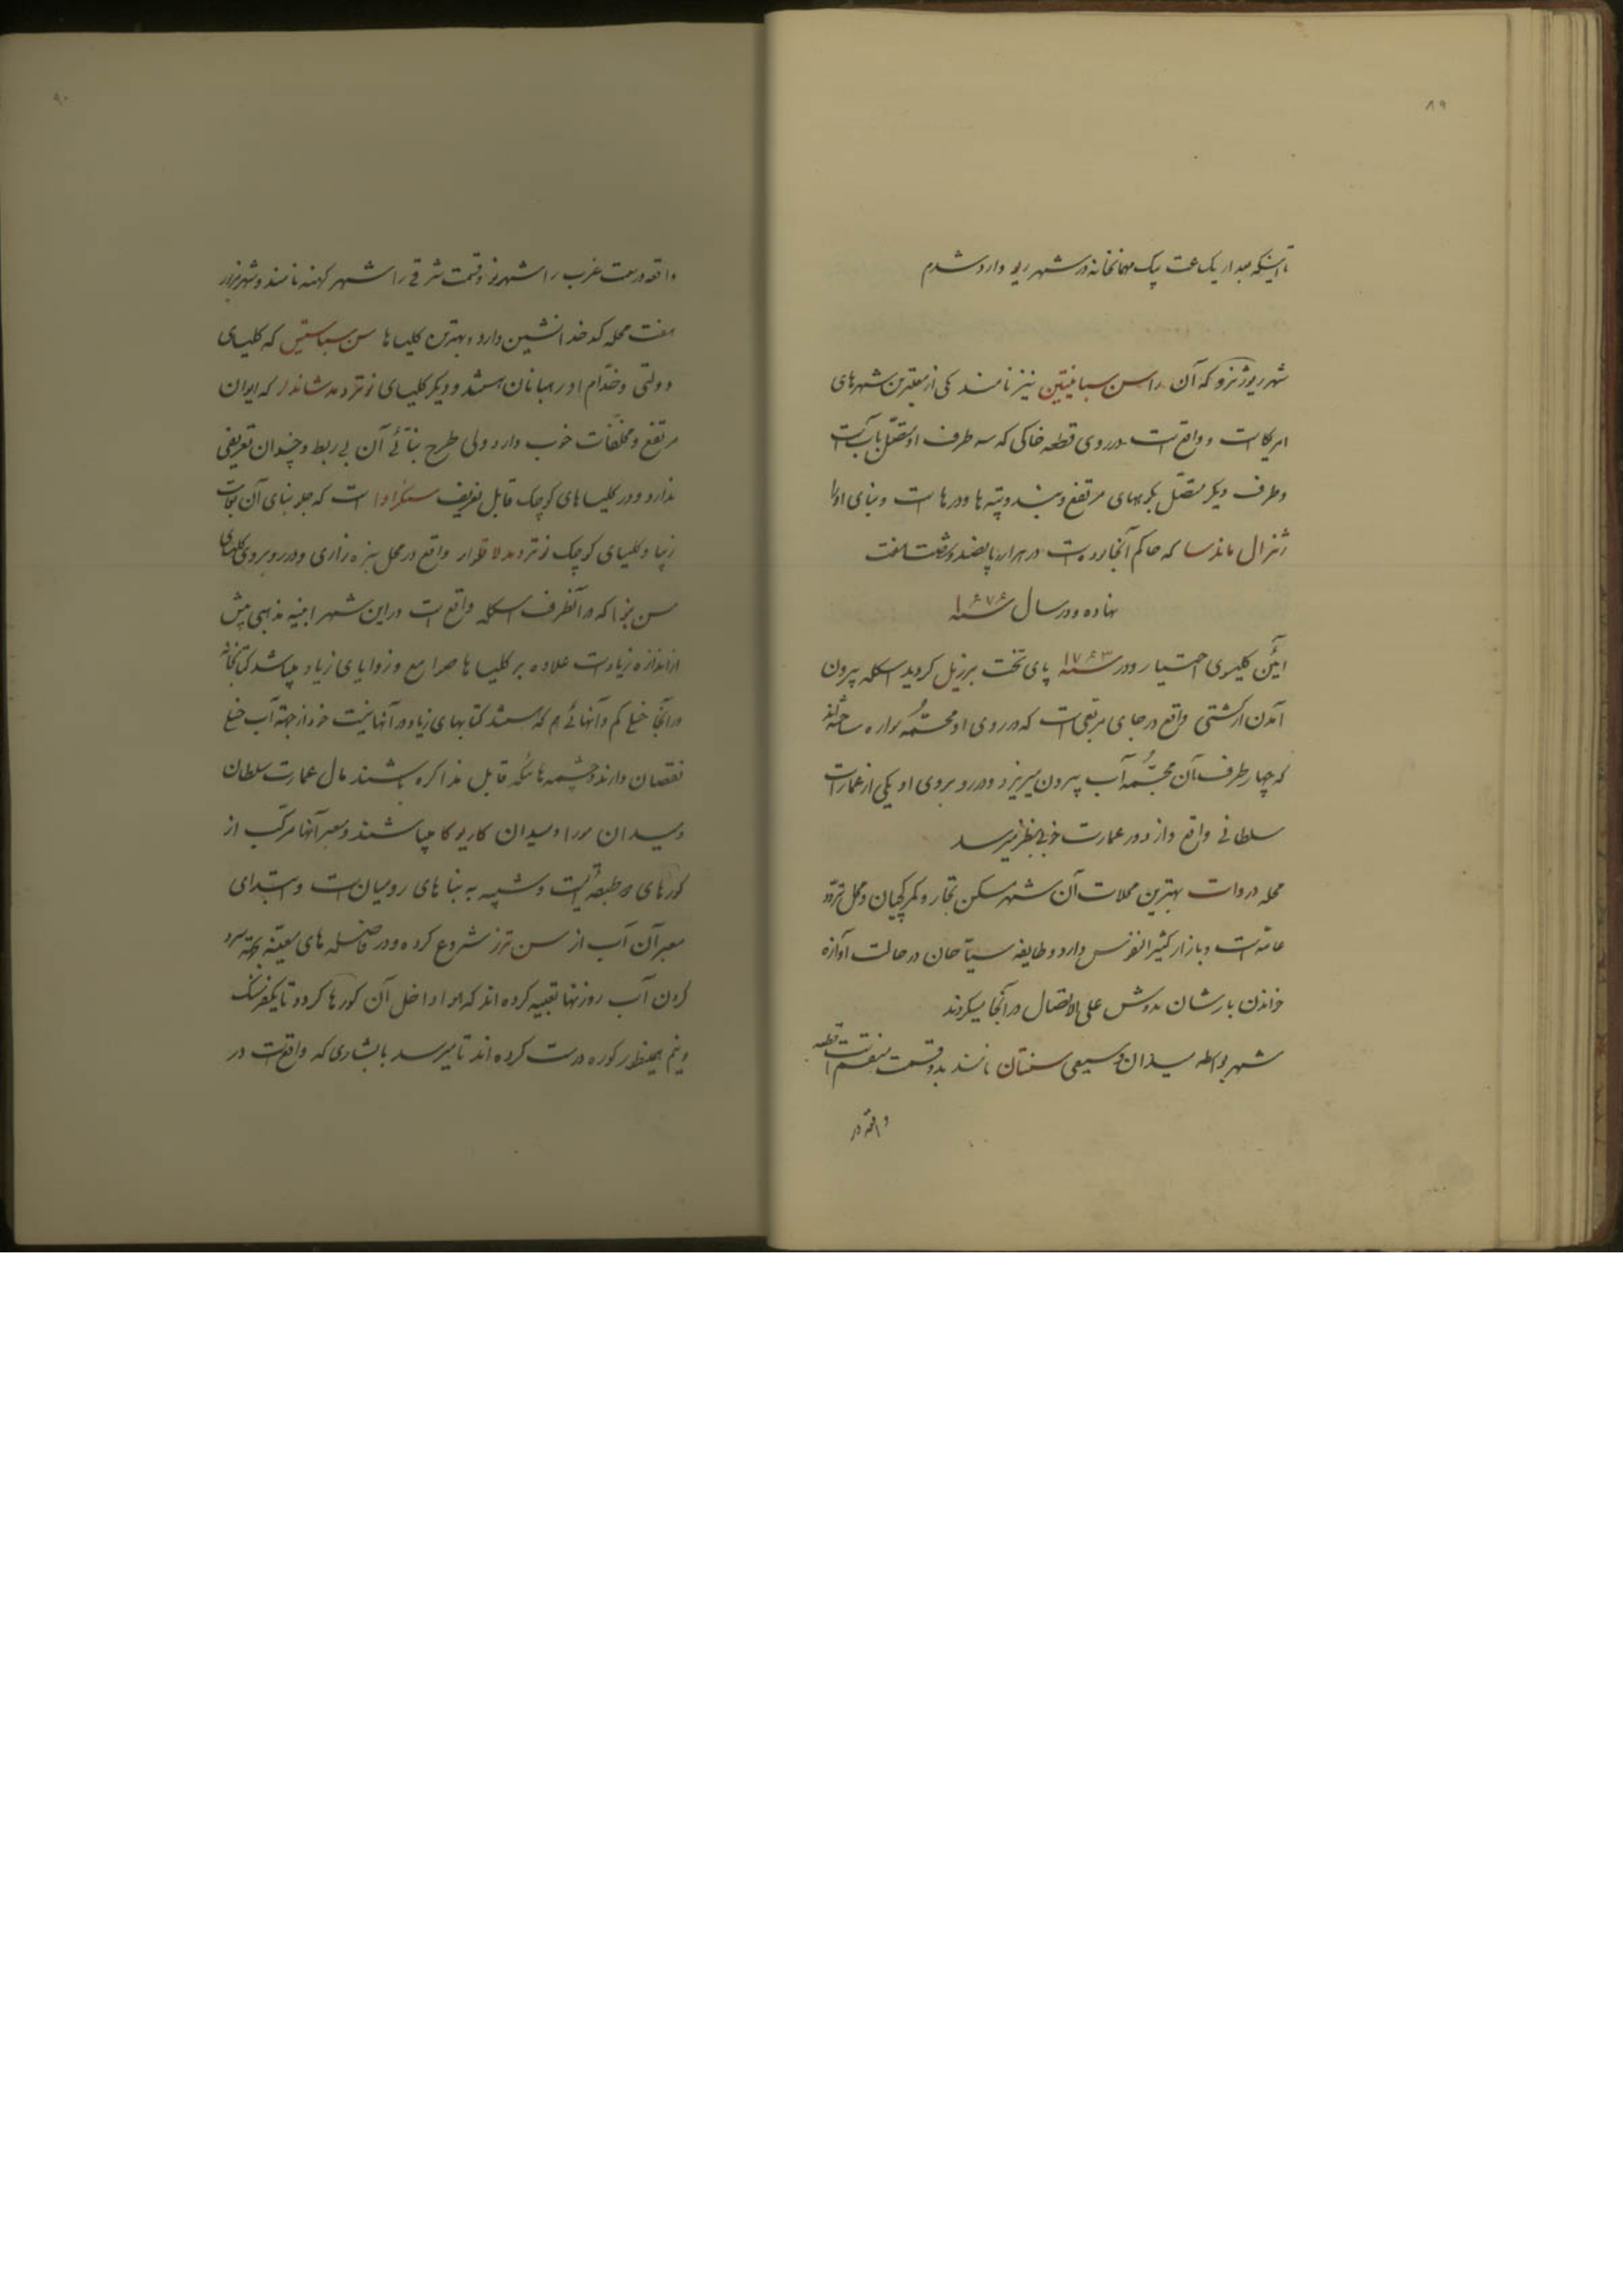 ۸۹
تا اینکه بعد از یک ساعت بیک مهمانخانه در شهر ریو وارد شدم
شهر ریوژنرو که آن را سن سباستین نیز نامند یکی از معظمترین شهرهای
امریکا است و واقع است در روی قطعه خاکی که سه طرف او متصل بآب است
و طرف دیگر متصل بکوههای مرتفع و بلند و تپه ها و درها است و بنای او را
ژنرال ماندسا که حاکم آنجا بوده است در هزار و پانصد و شصت و هفت
نهاده و در سال ۱۶۷۶
آئین کلیسوی اختیار و در سنه ۱۷۶۳ پای تخت برزیل گردید اسکله بیرون
آمدن از کشتی واقع در جای مربعی است که در روی او مجسمه فواره ساخته‌اند
که چهار طرف آن مجسمه آب بیرون میریزد و در روبروی او یکی از عمارات
سلطانی واقع و از دور عمارت خوبی بنظر میرسد
محله دروات بهترین محلات آن شهر مسکن تجار و گمرکچیان و محل تردد
عامه است و بازار کثیرالنفوس دارد و طایفه سیاحان در حالت آوازه
خواندن بارشان بدوش علی الاتصال در آنجا میگردند
شهر بواسطه میدان وسیعی سنتان نامند بدو قسمت منقسم است قطعه
واقعه در
۹۰
واقعه در سمت غرب را شهر نو و قسمت شرقی را شهر کهنه نامند و شهر مزبور
هفت محله کدخدانشین دارد و بهترین کلیساها سن سباستین که کلیسای
دولتی و خدّام او رهبانان هستند و دیگر کلیسای نوتردم دشاندلر که ایوان
مرتفع و مخلفات خوب دارد ولی طرح بنائی آن بی ربط و چندان تعریفی
ندارد و در کلیساهای کوچک قابل تعریف سنکراوا است که جلو بنای آن بغایت
زیبا و کلیسای کوچک نوتردم دلاقلوار واقع در محل سبزه زاری و در روبروی کلیسای
سن بزا که در آنطرف اسکله واقع است در این شهر ابنیه مذهبی بیش
از اندازه زیاد است علاوه بر کلیساها صوامع و زوایای زیاد میباشد کتابخانه
در آنجا خیلی کم و آنهائی هم که هستند کتابهای زیاد در آنها نیست خود از جهة آب خیلی
نقصان دارند و چشمه هائیکه قابل مذاکره باشند مال عمارت سلطان
و میدان مورا و میدان کاریوکا میباشند و معبر آنها مرکب از
کورهای دو طبقه ایست و شبیه به بناهای رومیان است و ابتدای
معبر آن آب از سن ترز شروع کرده و در فاصله های معینه بجهة سرد
کردن آب روزنها تعبیه کرده اند که هوا داخل آن کورها گردد تا یکفرسنگ
و نیم بهمینطور کوره درست کرده اند تا میرسد بآبشاری که واقع است در